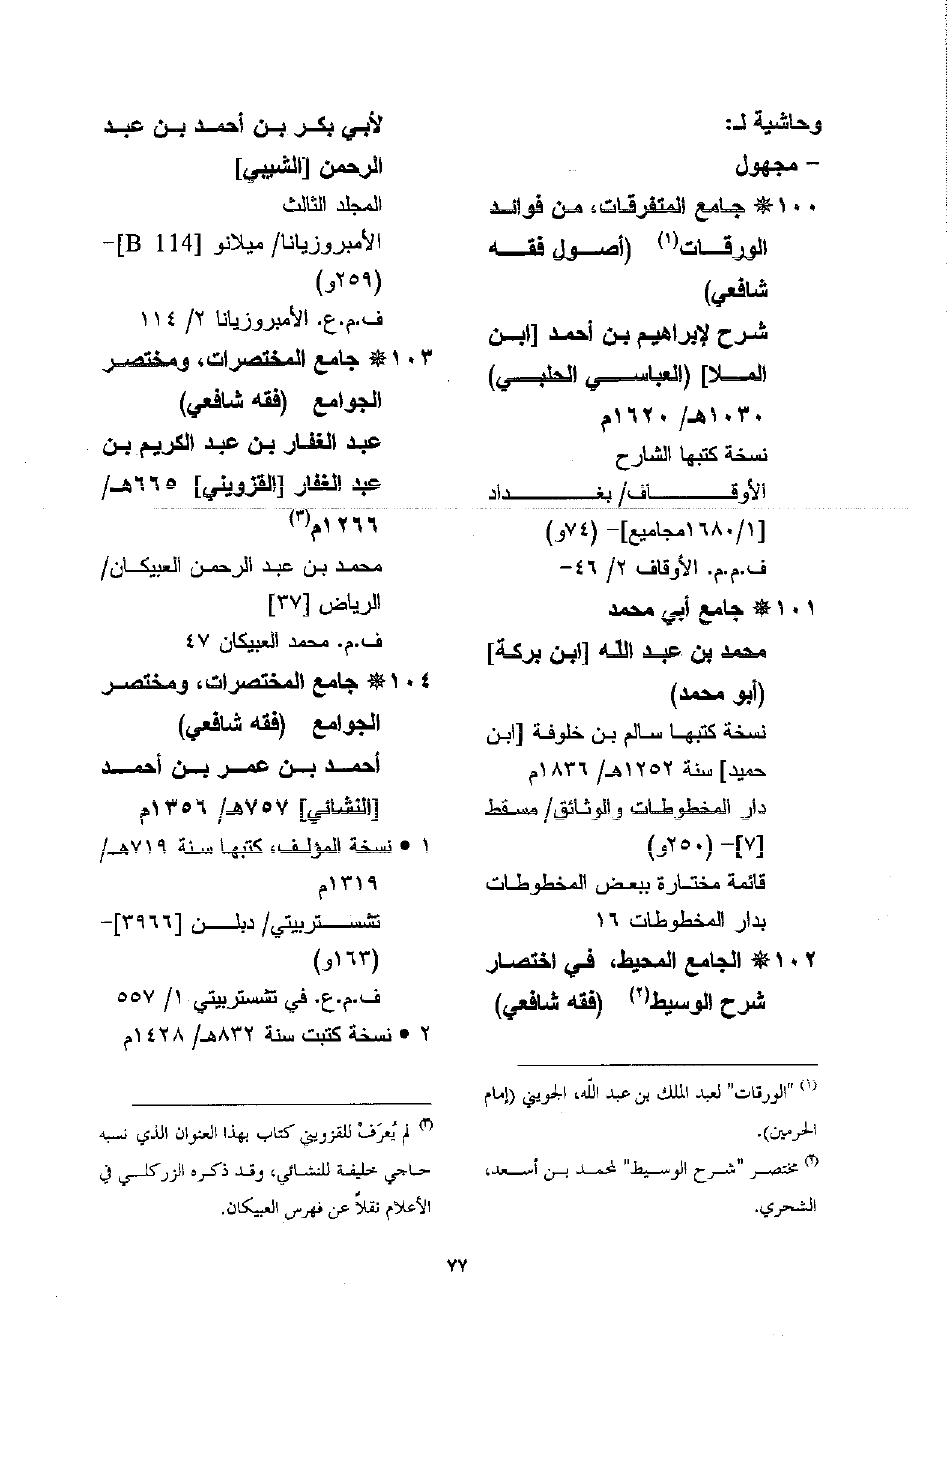 وحاشية لـ:
- مجهول
١٠٠* جامع المتفرقات، من فوائد
الورقات(١) (أصول فقه
شافعي)
شرح لإبراهيم بن أحمد [ابن
الملا] (العباسي الحلبي)
١٠٣٠هـ/ ١٦٢٠م
نسخة كتبها الشارح
الأوقاف/ بغداد
[١/١٦٨٠مجاميع]- (٧٤و)
ف.م.م. الأوقاف ٢/ ٤٦-
١٠١* جامع أبي محمد
محمد بن عبد الله [ابن بركة]
(أبو محمد)
نسخة كتبها سالم بن خلوفة [ابن
حميد] سنة ١٢٥٢هـ/ ١٨٣٦م
دار المخطوطات والوثائق/ مسقط
[٧]- (٢٥٠و)
قائمة مختارة ببعض المخطوطات
بدار المخطوطات ١٦
١٠٢* الجامع المحيط، في اختصار
شرح الوسيط(٢) (فقه شافعي)
(١) "الورقات" لعبد الملك بن عبد الله، الجويني (إمام
الحرمين).
(٢) مختصر "شرح الوسيط" لمحمد بن أسعد،
الشحري.
لأبي بكر بن أحمد بن عبد
الرحمن [الشبيبي]
المجلد الثالث
الأمبروزيانا/ ميلانو [B 114]-
(٢٥٩و)
ف.م.ع. الأمبروزيانا ٢/ ١١٤
١٠٣* جامع المختصرات، ومختصر
الجوامع (فقه شافعي)
عبد الغفار بن عبد الكريم بن
عبد الغفار [القزويني] ٦٦٥هـ/
١٢٦٦م(٣)
محمد بن عبد الرحمن العبيكان/
الرياض [٣٧]
ف.م. محمد العبيكان ٤٧
١٠٤* جامع المختصرات، ومختصر
الجوامع (فقه شافعي)
أحمد بن عمر بن أحمد
[النشائي] ٧٥٧هـ/ ١٣٥٦م
١ • نسخة المؤلف، كتبها سنة ٧١٩هـ/
١٣١٩م
تشستربيتي/ دبلن [٣٩٦٦]-
(١٦٣و)
ف.م.ع. في تشستربيتي ١/ ٥٥٧
٢ • نسخة كتبت سنة ٨٣٢هـ/ ١٤٢٨م
(٣) لم يُعرَفْ للقزويني كتاب بهذا العنوان الذي نسبه
حاجي خليفة للنشائي، وقد ذكره الزركلي في
الأعلام نقلاً عن فهرس العبيكان.
٧٧